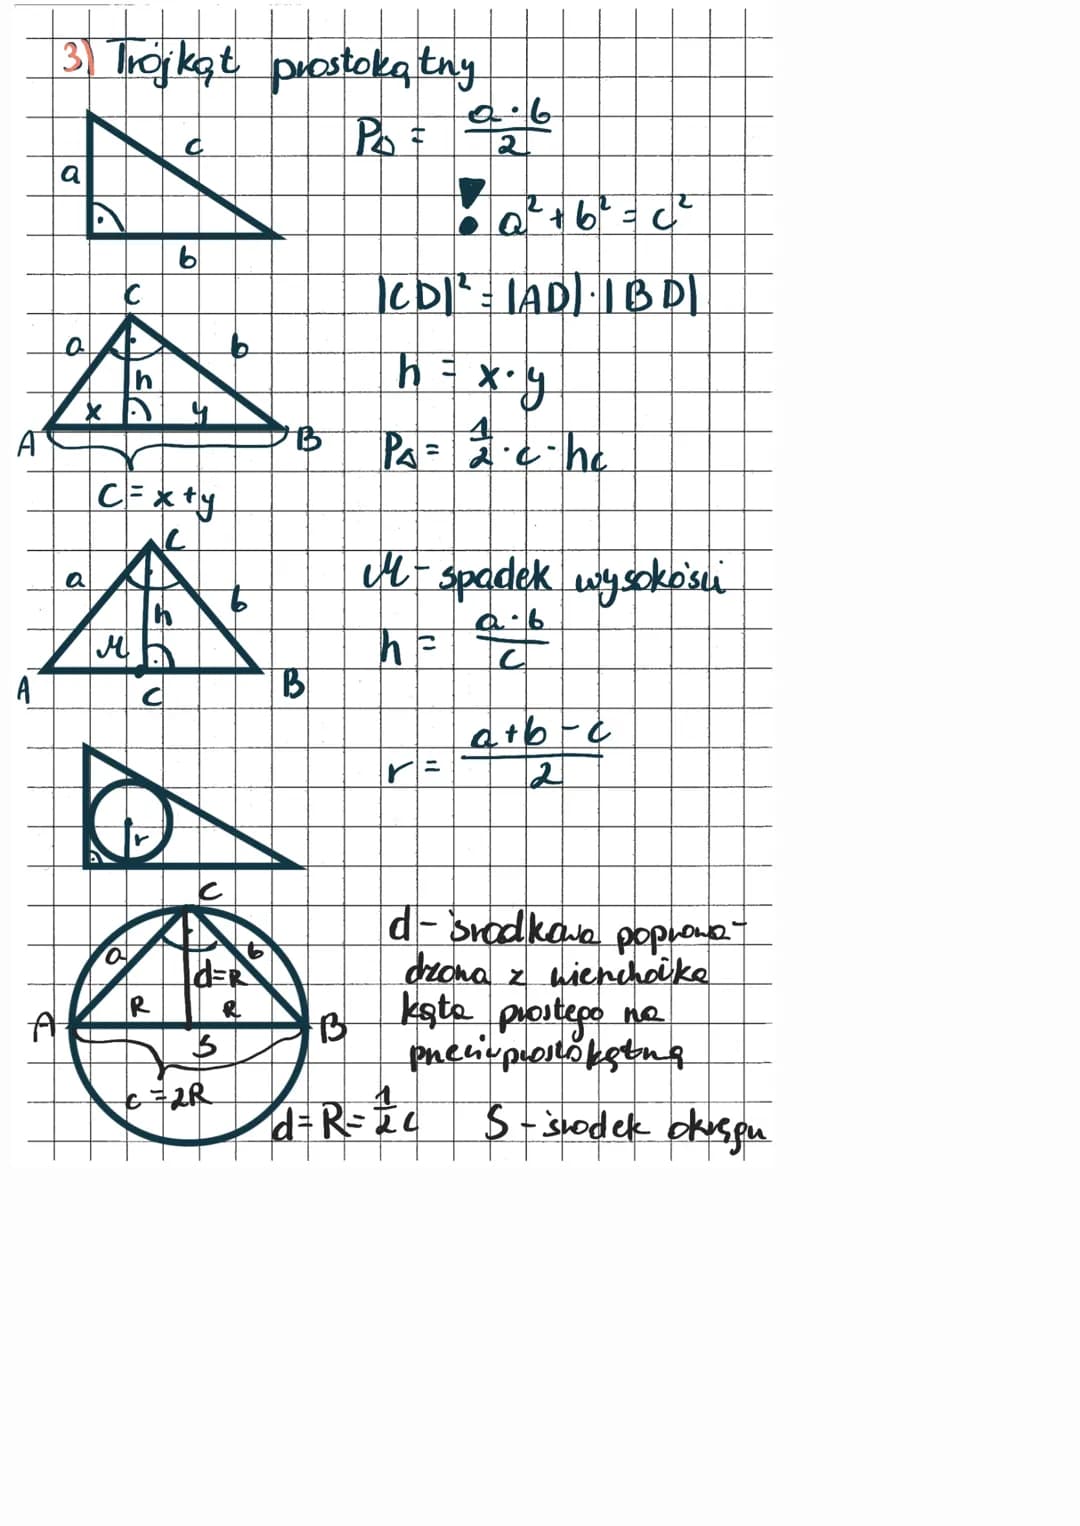 3) Trójkąt prostokątny
a
c
b
P△ = a·b/2
! a² + b² = c²
C
a
b
h
x
y
A
B
C = x + y
|CD|² = |AD|·|BD|
h = x·y
P△ = 1/2 · c · hc
C
a
b
h
M
A
c
B
M - spadek wysokości
h = a·b/c
r
r = a+b-c/2
C
a
b
d=R
R
R
A
B
S
c = 2R
d - środkowa poprowa-
dzona z wierzchołka
kąta prostego na
przeciwprostokątną
d = R = 1/2 c
S - środek okręgu